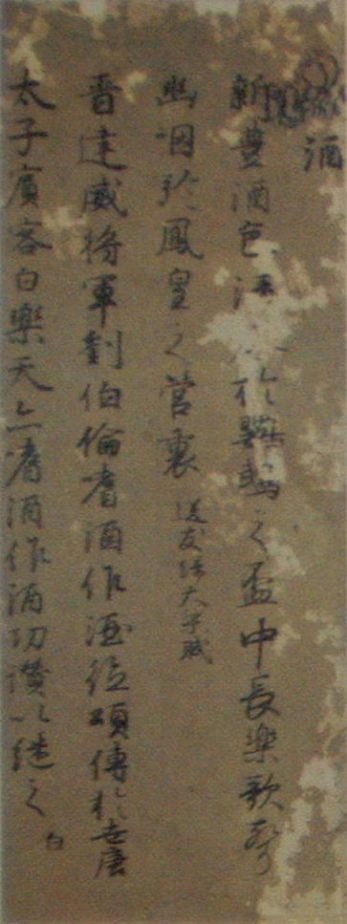 酒
新豊酒色清於鸚鵡之盃中長樂歌聲
幽咽於鳳皇之管裏 送友歸大梁賦
晋建威将軍劉伯倫嗜酒作酒徳頌傳於世唐
太子賓客白樂天亦嗜酒作酒功讃以継之 白